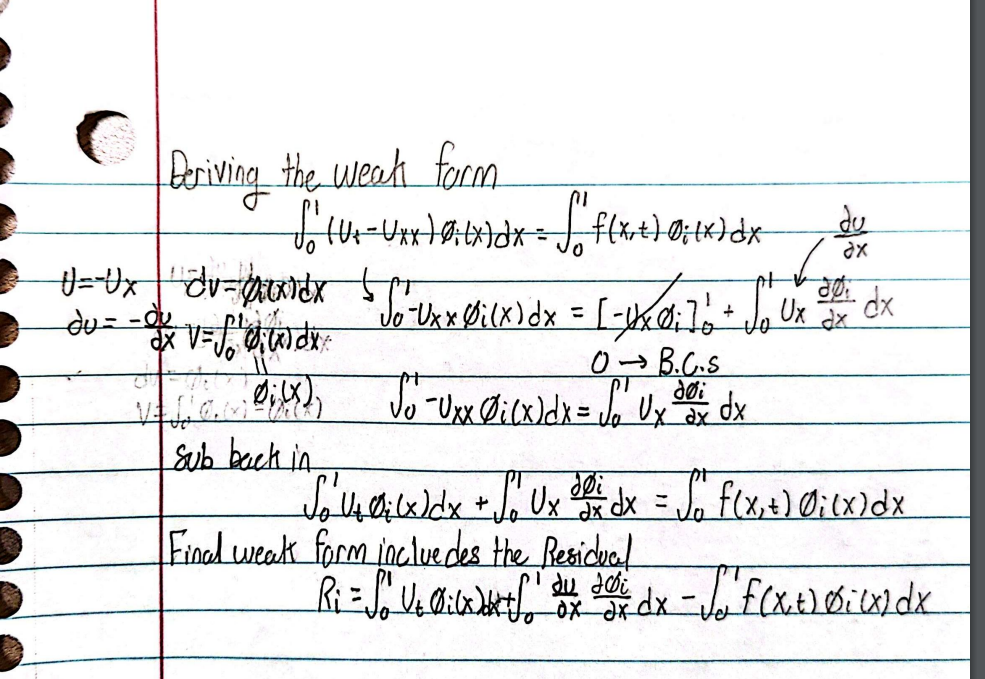 Deriving the weak form
∫₀¹ (Ut - Uxx) Øi(x)dx = ∫₀¹ f(x,t) Øi(x)dx
∂u/∂x
U = -Ux dv = Øi(x)dx ↳ ∫₀¹ -Uxx Øi(x)dx = [-Ux Øi]₀¹ + ∫₀¹ Ux ∂Øi/∂x dx
∂u = -∂u/∂x V = ∫₀¹ Øi(x)dx
0 → B.C.s
"
Øi(x) ∫₀¹ -Uxx Øi(x)dx = ∫₀¹ Ux ∂Øi/∂x dx
Sub back in
∫₀¹ Ut Øi(x)dx + ∫₀¹ Ux ∂Øi/∂x dx = ∫₀¹ f(x,t) Øi(x)dx
Final weak form incluedes the Residual
Ri = ∫₀¹ Ut Øi(x)dx + ∫₀¹ ∂u/∂x ∂Øi/∂x dx - ∫₀¹ f(x,t) Øi(x)dx